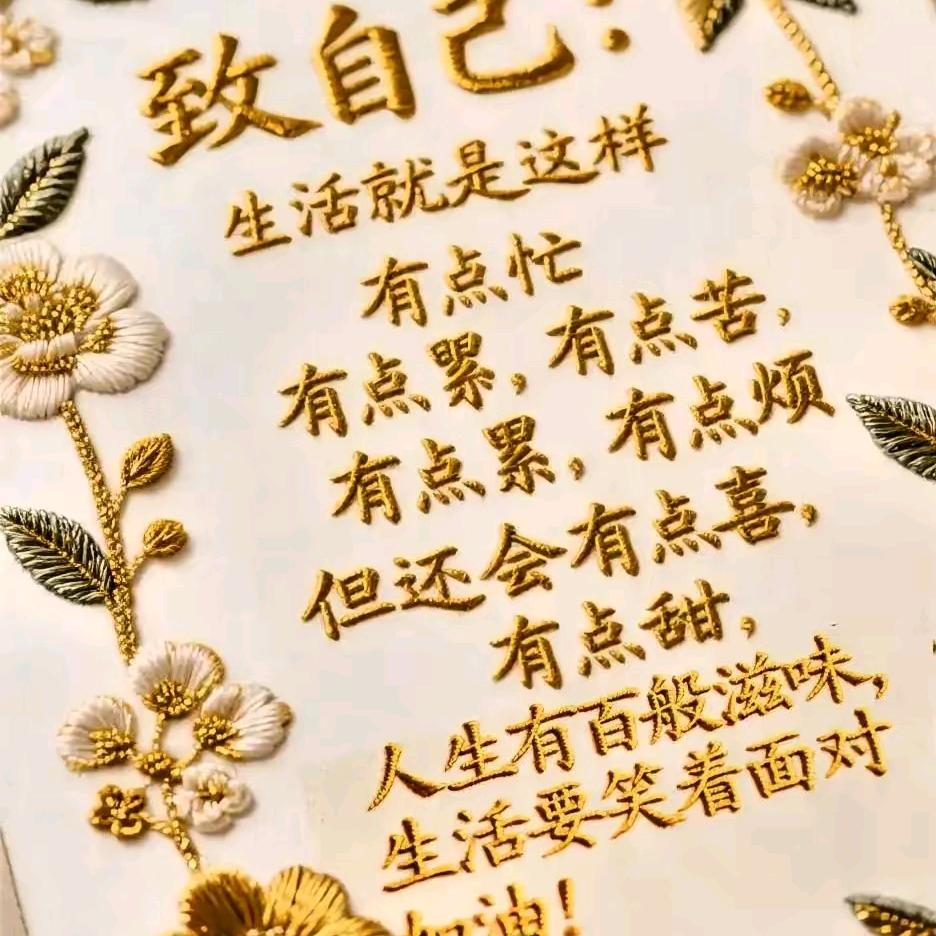 致自己:
生活就是这样
有点忙
有点累,有点苦,
有点累,有点烦
但还会有点喜,
有点甜,
人生有百般滋味,
生活要笑着面对
加油!